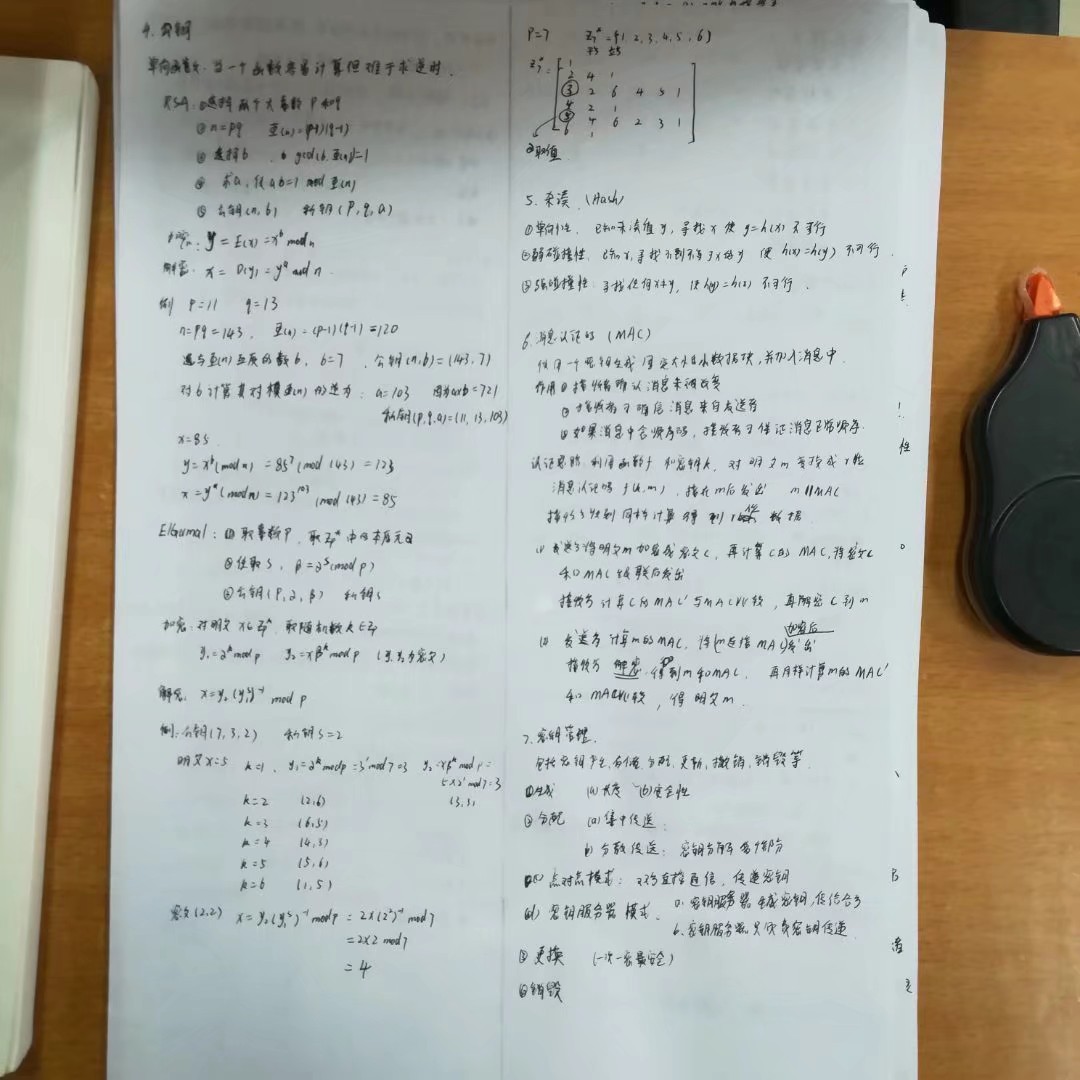 4. 公钥
单向函数: 当一个函数容易计算但难于求逆时.
RSA: ①选择两个大素数 p和q
② n=pq Φ(n)=(p-1)(q-1)
③ 选择b , 使 gcd(b, Φ(n))=1
④ 求a, 使 ab=1 mod Φ(n)
⑤ 公钥(n, b) 私钥(p, q, a)
加密: y = E(x) = x^b mod n
解密: x = D(y) = y^a mod n
例 p=11 q=13
n=pq=143, Φ(n)=(p-1)(q-1)=120
选与Φ(n)互质的数b, b=7 , 公钥(n,b)=(143,7)
对b计算其对模Φ(n)的逆为: a=103 因为a×b=721
私钥(p,q,a)=(11,13,103)
x=85
y=x^b(mod n) = 85^7(mod 143) = 123
x=y^a(mod n) = 123^103(mod 143) = 85
ElGamal: ① 取素数p, 取Zp* 中的本原元α
②任取s, β=α^s(mod p)
③公钥(p, α, β) 私钥s
加密: 对明文x∈Zp*, 取随机数k∈Zp
y₁=α^k mod p y₂=xβ^k mod p
解密: x=y₂(y₁^s)^-1 mod p
例: 公钥(7,3,2) 私钥s=2
明文x=5 k=1, y₁=α^k mod p=3^1 mod 7=3 y₂=xβ^k mod p=
5×2^1 mod 7=3
(3,3)
k=2 (2,6)
k=3 (6,5)
k=4 (4,3)
k=5 (5,6)
k=6 (1,5)
密文(2,2) x=y₂(y₁^s)^-1 mod p = 2×(2²)^-1 mod 7
=2×2 mod 7
=4
p=7 Z₇*={1,2,3,4,5,6}
Z₇*=
1
2 4 1
3 2 6 4 5 1
4 2 1
5 4 6 2 3 1
6 1
α取值
5. 杂凑 (Hash)
①单向性, 已知杂凑值y, 寻找x使y=h(x)不可行
②弱碰撞性, 已知x, 寻找不到不等于x的y 使h(x)=h(y)不可行.
③强碰撞性: 寻找任何x≠y, 使h(y)=h(x)不可行.
6. 消息认证码 (MAC)
使用一个密钥生成固定大小的小数据块, 并加入消息中.
作用 ① 接收者确认消息未被改变
② 接收者可确信消息来自发送者
③ 如果消息中含顺序码, 接收者可保证消息正常顺序.
认证思路: 利用函数f和密钥k, 对明文m变换成r位
消息认证码f(k,m), 接在m后发出 m||MAC
接收方收到同样计算得到r位数据.
(1) 发送方将明文m加密成密文c, 再计算c的MAC, 将密文c
和MAC级联后发出
接收方计算c的MAC'与MAC比较, 再解密c到m
(2) 发送方计算m的MAC, 将(m连接MAC)加密后发出
接收方解密, 得到m和MAC, 再同样计算m的MAC'
和MAC比较, 得明文m.
7. 密钥管理
包括密钥产生, 存储, 分配, 更新, 撤销, 销毁等.
①生成 (a)长度 (b)安全性
②分配 (a)集中传送:
(b)分散传送: 密钥分解多个部分
(c)点对点模式: 双方直接通信, 传递密钥
(d) 密钥服务器模式. a. 密钥服务器生成密钥, 传给各方
b. 密钥服务器只负责密钥传递
③ 更换 (一次一密最安全)
④销毁